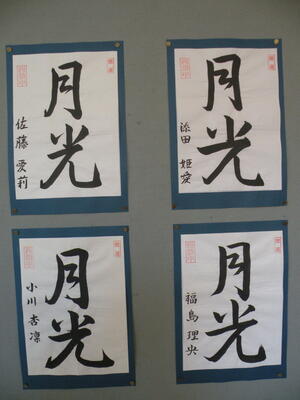 月光
佐藤 愛莉
月光
添田 姫愛
月光
小川 杏凜
月光
福島 理央